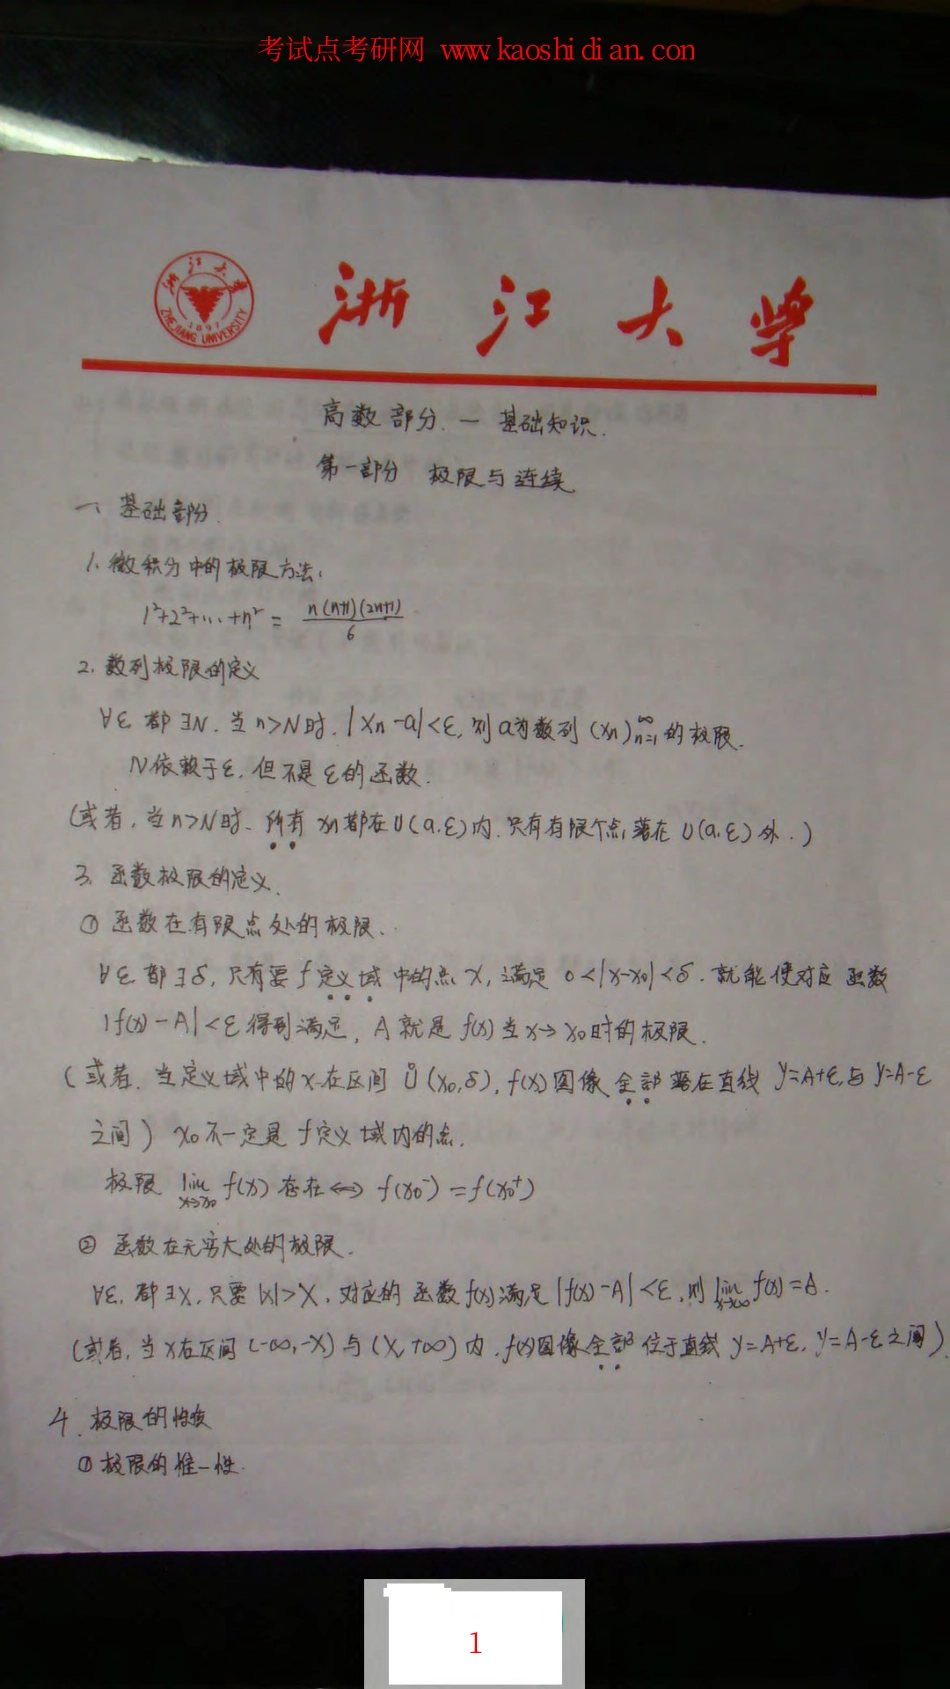 考试点考研网 www.kaoshidian.com
浙江大学
ZHEJIANG UNIVERSITY
1897
浙江大学
高数部分.一 基础知识.
第一部分 极限与连续
一、基础部分.
1、微积分中的极限方法:
1²+2²+...+n² = n(n+1)(2n+1)/6
2. 数列极限的定义
∀ε. 都∃N. 当n>N时. |Xn-a|<ε, 则a为数列 (xn)_{n=1}^∞ 的极限.
N依赖于ε, 但不是ε的函数.
(或者, 当n>N时、所有 xn都在U(a.ε)内. 只有有限个点落在U(a.ε)外.)
3. 函数极限的定义.
① 函数在有限点处的极限.
∀ε 都∃δ, 只有要f定义域中的点x, 满足 0<|x-x0|<δ. 就能使对应函数
|f(x)-A|<ε得到满足, A就是f(x)当x→x0时的极限.
(或者. 当定义域中的x在区间Ů(x0,δ), f(x)图像全部落在直线 y=A+ε与y=A-ε
之间) x0不一定是f定义域内的点.
极限 lim_{x→x0} f(x) 存在 ⇔ f(x0⁻)=f(x0⁺)
② 函数在无穷大处的极限.
∀ε, 都∃X, 只要|x|>X, 对应的函数f(x)满足|f(x)-A|<ε, 则lim_{x→∞} f(x)=A.
(或者, 当x在区间(-∞,-X)与(X,+∞)内, f(x)图像全部位于直线y=A+ε, y=A-ε之间).
4. 极限的性质
① 极限的惟一性.
1